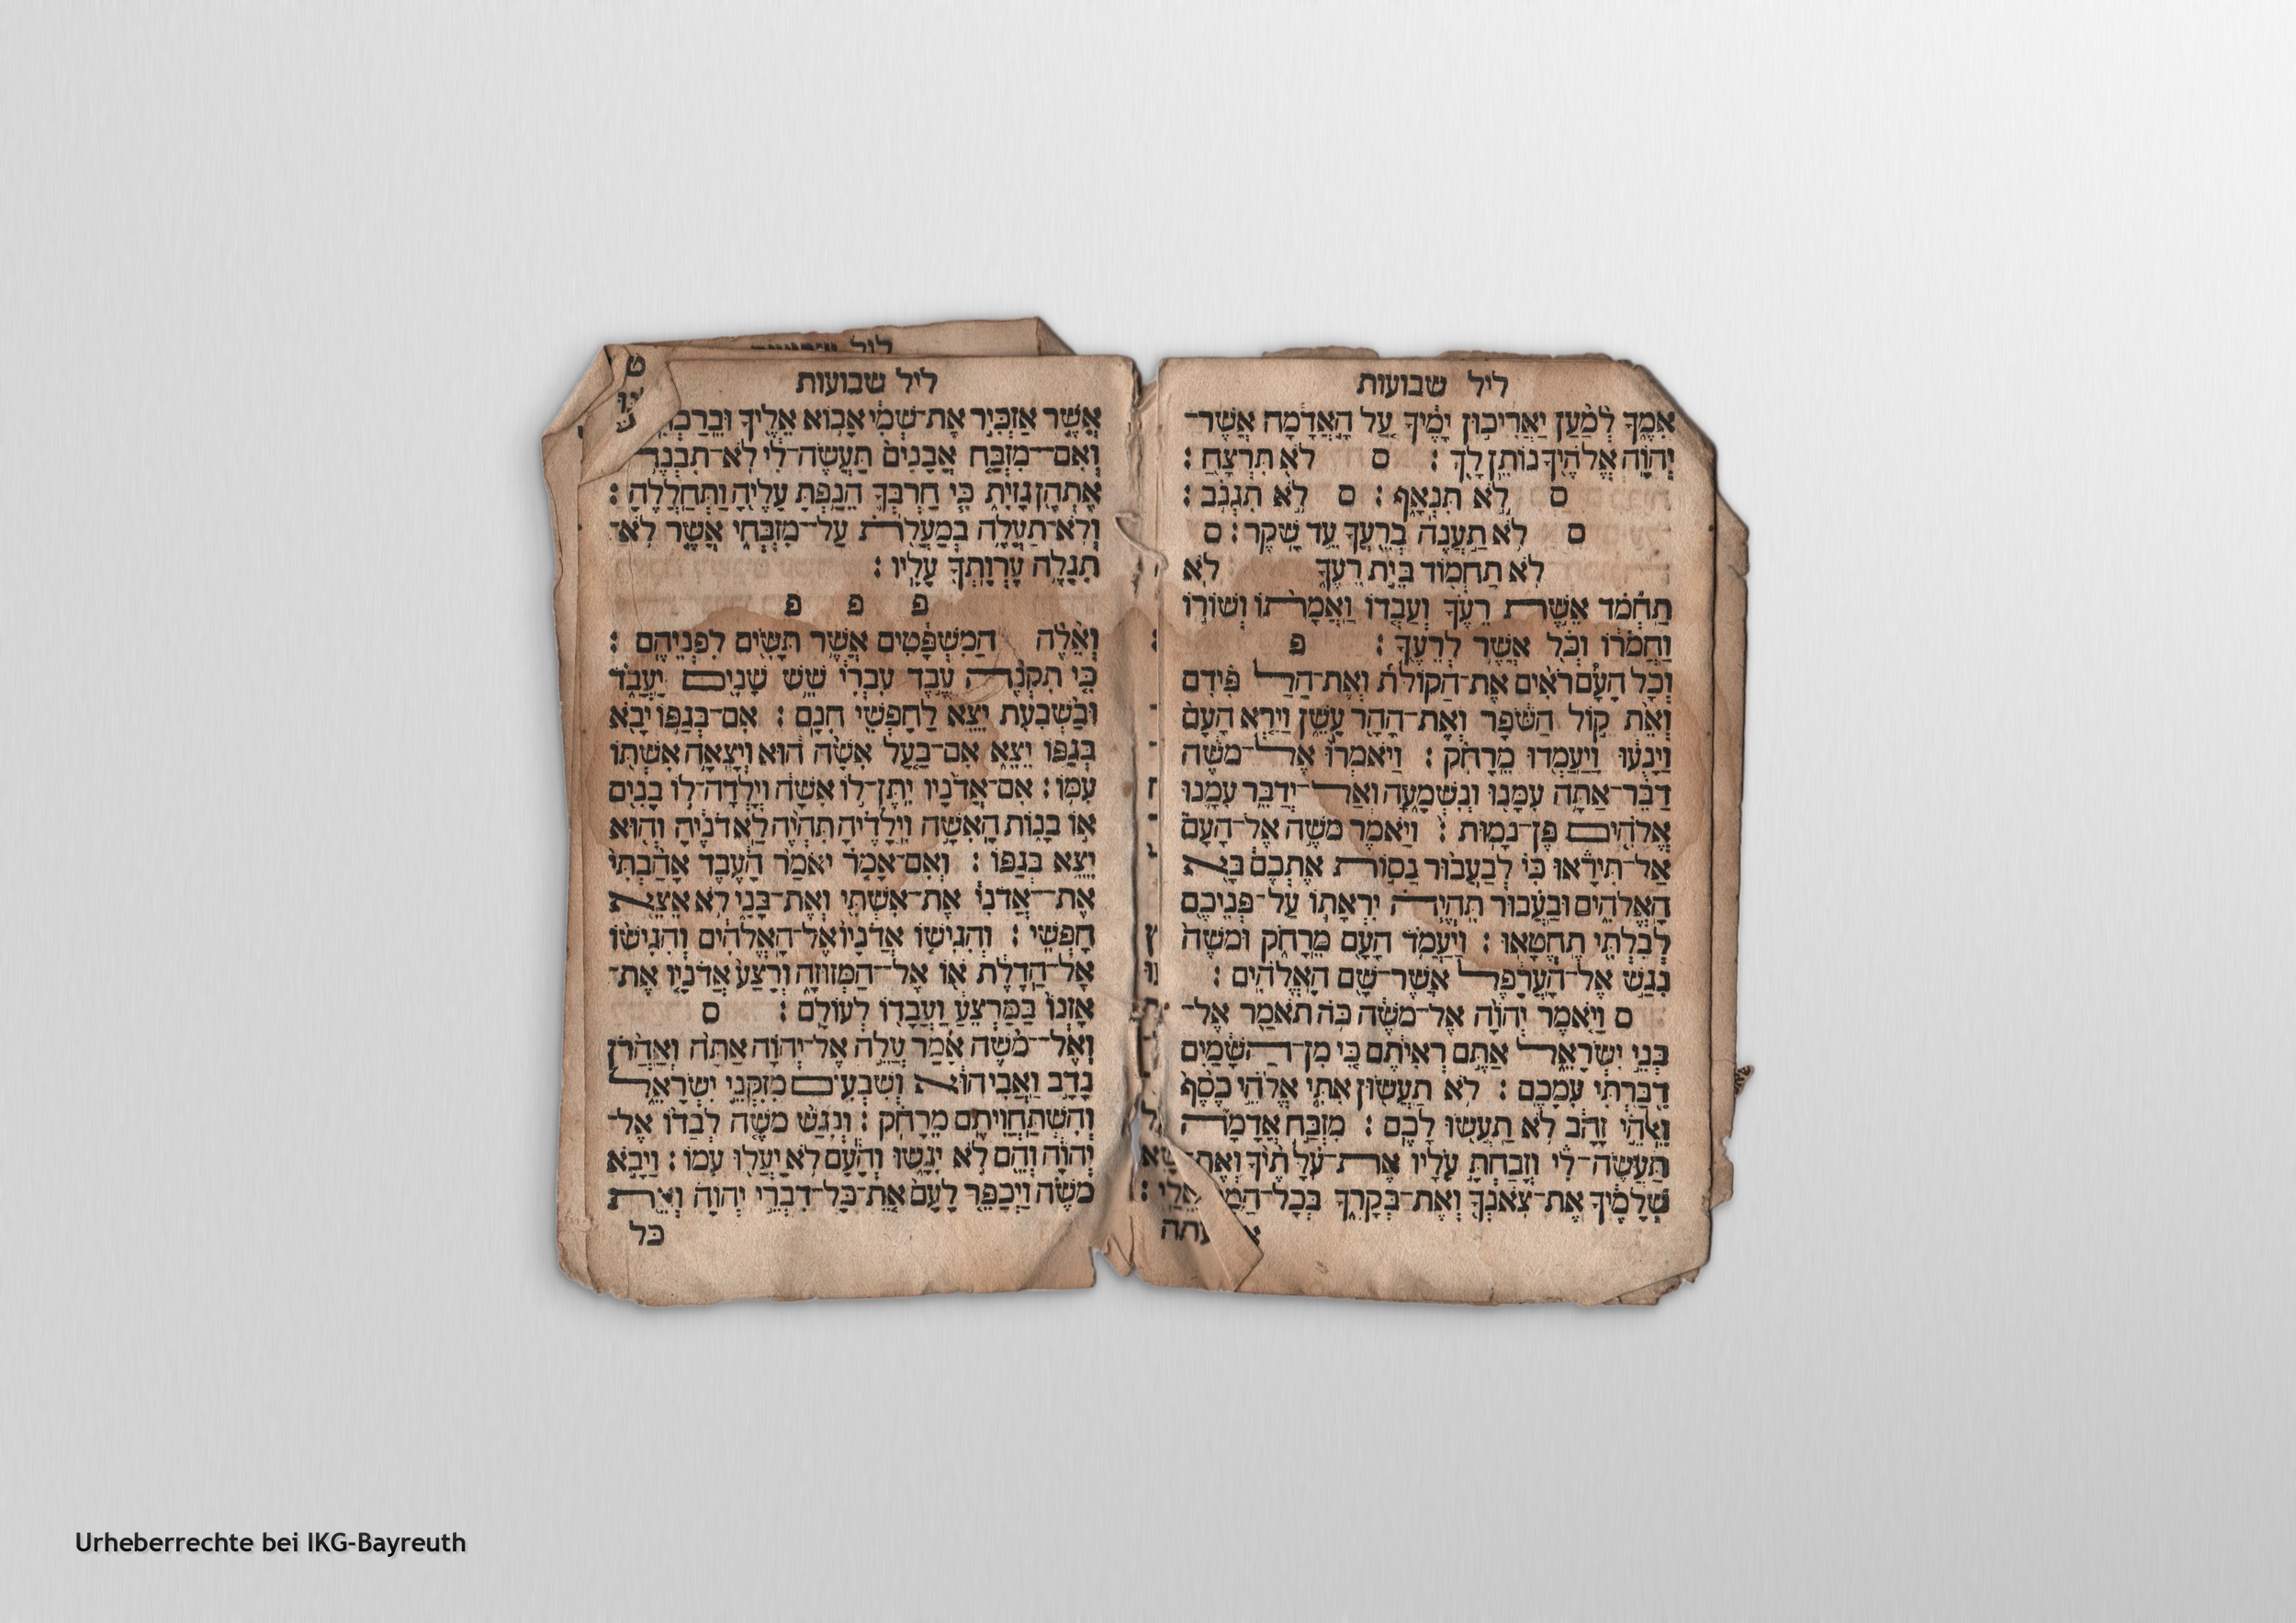 ליל שבועות
אִמֶּךָ לְמַעַן יַאֲרִיכוּן יָמֶיךָ עַל הָאֲדָמָה אֲשֶׁר־
יְהוָה אֱלֹהֶיךָ נוֹתֵן לָךְ : ס לֹא תִּרְצָח :
ס לֹא תִּנְאָף : ס לֹא תִּגְנֹב :
ס לֹא תַעֲנֶה בְרֵעֲךָ עֵד שָׁקֶר : ס
לֹא תַחְמוֹד בֵּית רֵעֶךָ לֹא
תַחְמֹד אֵשֶׁת רֵעֶךָ וְעַבְדּוֹ וַאֲמָתוֹ וְשׁוֹרוֹ
וַחֲמֹרוֹ וְכֹל אֲשֶׁר לְרֵעֶךָ : פ
וְכָל הָעָם רֹאִים אֶת־הַקּוֹלֹת וְאֶת־הַלַּפִּידִם
וְאֵת קוֹל הַשֹּׁפָר וְאֶת־הָהָר עָשֵׁן וַיַּרְא הָעָם
וַיָּנֻעוּ וַיַּעַמְדוּ מֵרָחֹק : וַיֹּאמְרוּ אֶל־מֹשֶׁה
דַּבֵּר־אַתָּה עִמָּנוּ וְנִשְׁמָעָה וְאַל־יְדַבֵּר עִמָּנוּ
אֱלֹהִים פֶּן־נָמוּת : וַיֹּאמֶר מֹשֶׁה אֶל־הָעָם
אַל־תִּירָאוּ כִּי לְבַעֲבוּר נַסּוֹת אֶתְכֶם בָּא
הָאֱלֹהִים וּבַעֲבוּר תִּהְיֶה יִרְאָתוֹ עַל־פְּנֵיכֶם
לְבִלְתִּי תֶחֱטָאוּ : וַיַּעֲמֹד הָעָם מֵרָחֹק וּמֹשֶׁה
נִגַּשׁ אֶל־הָעֲרָפֶל אֲשֶׁר־שָׁם הָאֱלֹהִים :
ס וַיֹּאמֶר יְהוָה אֶל־מֹשֶׁה כֹּה תֹאמַר אֶל־
בְּנֵי יִשְׂרָאֵל אַתֶּם רְאִיתֶם כִּי מִן־הַשָּׁמַיִם
דִּבַּרְתִּי עִמָּכֶם : לֹא תַעֲשׂוּן אִתִּי אֱלֹהֵי כֶסֶף
וֵאלֹהֵי זָהָב לֹא תַעֲשׂוּ לָכֶם : מִזְבַּח אֲדָמָה
תַּעֲשֶׂה־לִּי וְזָבַחְתָּ עָלָיו אֶת־עֹלֹתֶיךָ וְאֶת־
שְׁלָמֶיךָ אֶת־צֹאנְךָ וְאֶת־בְּקָרֶךָ בְּכָל־
ליל שבועות
אֲשֶׁר אַזְכִּיר אֶת־שְׁמִי אָבוֹא אֵלֶיךָ
וְאִם־מִזְבַּח אֲבָנִים תַּעֲשֶׂה־לִּי לֹא־תִבְנֶה
אֶתְהֶן גָּזִית כִּי חַרְבְּךָ הֵנַפְתָּ עָלֶיהָ וַתְּחַלֲלֶהָ :
וְלֹא־תַעֲלֶה בְמַעֲלֹת עַל־מִזְבְּחִי אֲשֶׁר לֹא־
תִגָּלֶה עֶרְוָתְךָ עָלָיו :
פ פ פ
וְאֵלֶּה הַמִּשְׁפָּטִים אֲשֶׁר תָּשִׂים לִפְנֵיהֶם :
כִּי תִקְנֶה עֶבֶד עִבְרִי שֵׁשׁ שָׁנִים יַעֲבֹד
וּבַשְּׁבִעִת יֵצֵא לַחָפְשִׁי חִנָּם : אִם־בְּגַפּוֹ יָבֹא
בְּגַפּוֹ יֵצֵא אִם־בַּעַל אִשָּׁה הוּא וְיָצְאָה אִשְׁתּוֹ
עִמּוֹ : אִם־אֲדֹנָיו יִתֶּן־לוֹ אִשָּׁה וְיָלְדָה־לוֹ בָנִים
אוֹ בָנוֹת הָאִשָּׁה וִילָדֶיהָ תִּהְיֶה לַאדֹנֶיהָ וְהוּא
יֵצֵא בְגַפּוֹ : וְאִם־אָמֹר יֹאמַר הָעֶבֶד אָהַבְתִּי
אֶת־אֲדֹנִי אֶת־אִשְׁתִּי וְאֶת־בָּנָי לֹא אֵצֵא
חָפְשִׁי : וְהִגִּישׁוֹ אֲדֹנָיו אֶל־הָאֱלֹהִים וְהִגִּישׁוֹ
אֶל־הַדֶּלֶת אוֹ אֶל־הַמְּזוּזָה וְרָצַע אֲדֹנָיו אֶת־
אָזְנוֹ בַּמַּרְצֵעַ וַעֲבָדוֹ לְעוֹלָם : ס
וְאֶל־מֹשֶׁה אָמַר עֲלֵה אֶל־יְהוָה אַתָּה וְאַהֲרֹן
נָדָב וַאֲבִיהוּא וְשִׁבְעִים מִזִּקְנֵי יִשְׂרָאֵל
וְהִשְׁתַּחֲוִיתֶם מֵרָחֹק : וְנִגַּשׁ מֹשֶׁה לְבַדּוֹ אֶל־
יְהוָה וְהֵם לֹא יִגָּשׁוּ וְהָעָם לֹא יַעֲלוּ עִמּוֹ : וַיָּבֹא
מֹשֶׁה וַיְסַפֵּר לָעָם אֵת כָּל־דִּבְרֵי יְהוָה וְאֵת
כל
Urheberrechte bei IKG-Bayreuth